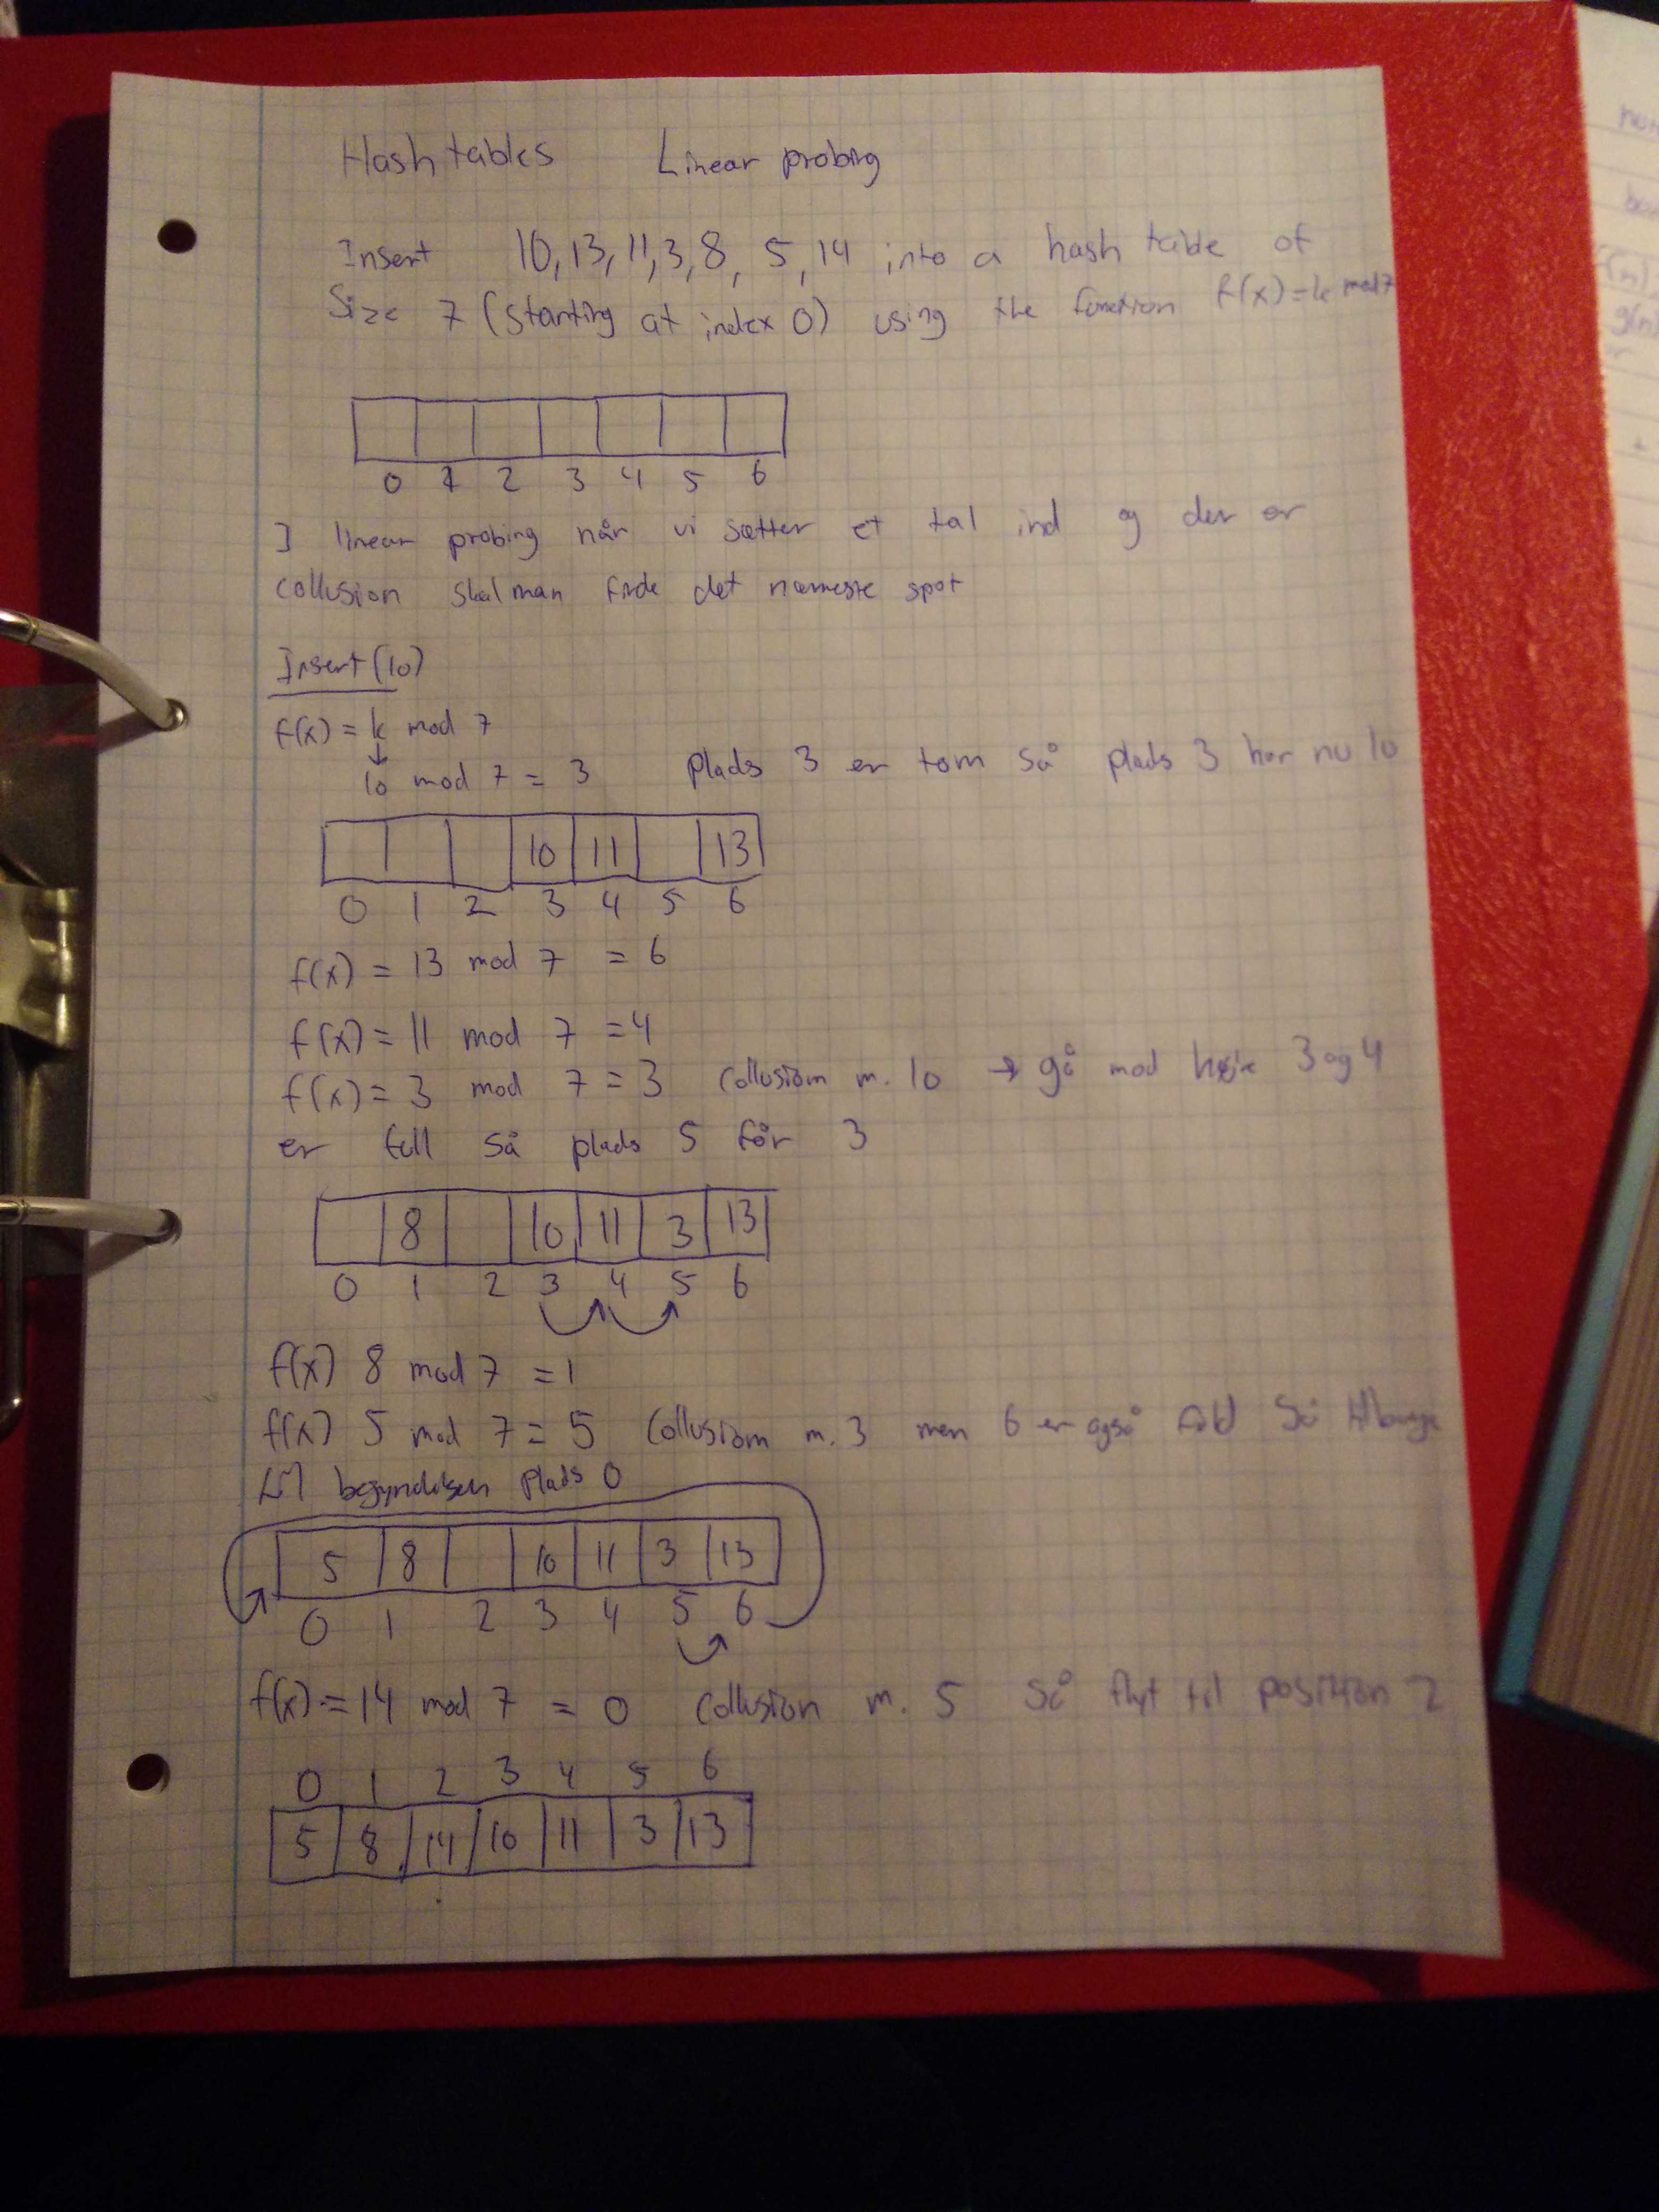 Hash tables Linear probing
Insert 10, 13, 11, 3, 8, 5, 14 into a hash table of
Size 7 (starting at index 0) using the function f(x) = k mod 7
0 1 2 3 4 5 6
I linear probing når vi sætter et tal ind og der er
collusion skal man finde det nærmeste spot
Insert(10)
f(x) = k mod 7
↓
10 mod 7 = 3 Plads 3 er tom så plads 3 har nu 10
10 11 13
0 1 2 3 4 5 6
f(x) = 13 mod 7 = 6
f(x) = 11 mod 7 = 4
f(x) = 3 mod 7 = 3 Collusion m. 10 → gå mod højre 3 og 4
er full så plads 5 får 3
8 10 11 3 13
0 1 2 3 4 5 6
f(x) 8 mod 7 = 1
f(x) 5 mod 7 = 5 Collusion m. 3 men 6 er også fuld Så tilbage
til begyndelsen plads 0
5 8 10 11 3 13
0 1 2 3 4 5 6
f(x) = 14 mod 7 = 0 Collusion m. 5 Så flyt til position 2
0 1 2 3 4 5 6
5 8 14 10 11 3 13